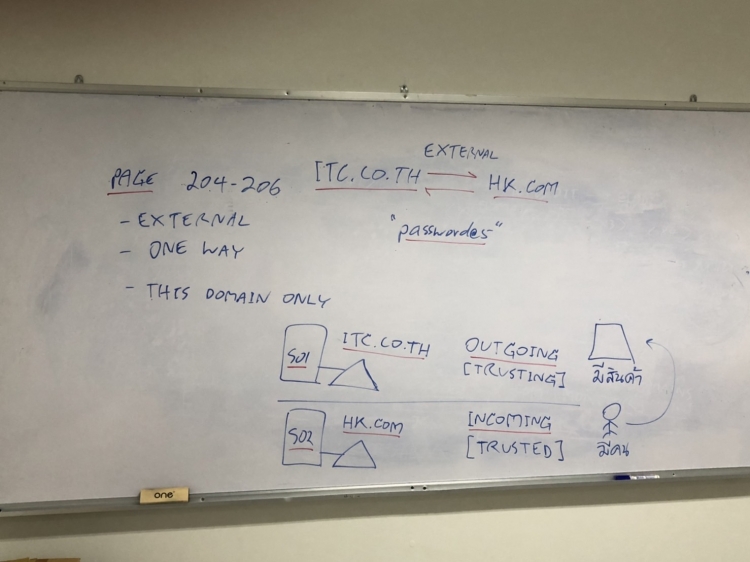 PAGE 204-206
- EXTERNAL
- ONE WAY
- THIS DOMAIN ONLY
EXTERNAL
ITC.CO.TH HK.COM
"password@5"
S01 ITC.CO.TH OUTGOING
[TRUSTING] มีสินค้า
S02 HK.COM INCOMING
[TRUSTED] มีคน
one